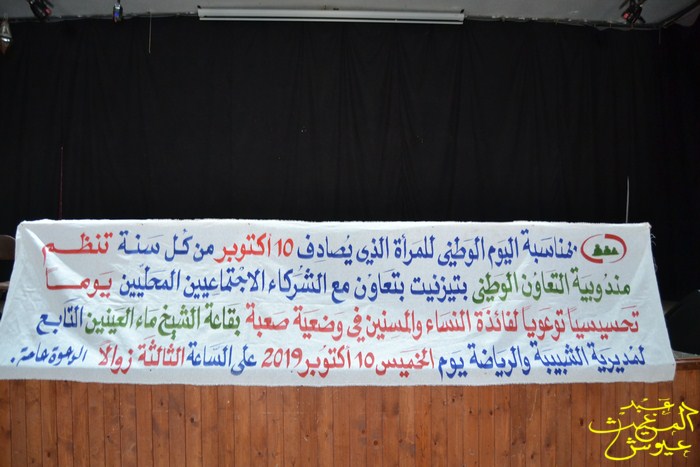 بمناسبة اليوم الوطني للمرأة الذي يُصادف 10 أكتوبر من كل سنة تنظم
مندوبية التعاون الوطني بتيزنيت بتعاون مع الشركاء الاجتماعيين المحليين يوما
تحسيسيا توعويا لفائدة النساء والمسنين في وضعية صعبة بقاعة الشيخ ماء العينين التابع
لمديرية الشبيبة والرياضة يوم الخميس 10 أكتوبر 2019 على الساعة الثالثة زوالا الدعوة عامة.
عبد
المغيث
عيوش